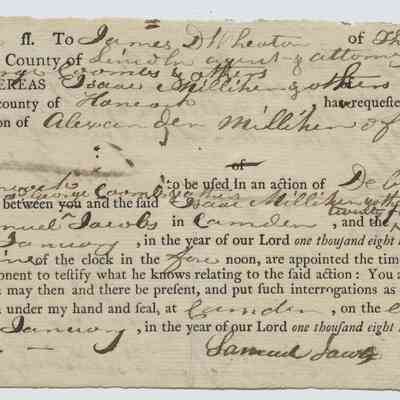 ss. To James D Wheaton of Th
County of Lincoln agent & attorney
George Coombs & others
EREAS Isaac Milliken & others
county of Hancock, have requeste
on of Alexander Milliken of
of
to be used in an action of Deb
George Coombs & others
between you and the said Isaac Milliken & oth
twenty
muel Jacobs in Camden, and the
January, in the year of our Lord one thousand eight
ine of the clock in the fore noon, are appointed the tim
ponent to testify what he knows relating to the said action: You a
may then and there be present, and put such interrogations as
n under my hand and seal, at Camden, on the
January, in the year of our Lord one thousand eight
Samuel Jacobs